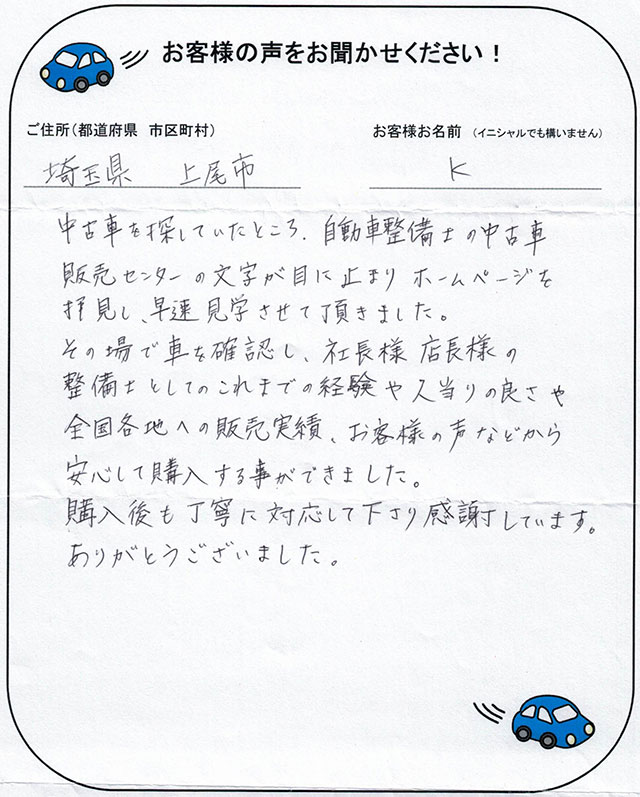 お客様の声をお聞かせください！
ご住所（都道府県 市区町村）
お客様お名前 （イニシャルでも構いません）
埼玉県 上尾市
K
中古車を探していたところ、自動車整備士の中古車
販売センターの文字が目に止まり ホームページを
拝見し、早速見学させて頂きました。
その場で車を確認し、社長様 店長様の
整備士としてのこれまでの経験や人当りの良さや
全国各地への販売実績、お客様の声などから
安心して購入する事ができました。
購入後も丁寧に対応して下さり感謝しています。
ありがとうございました。